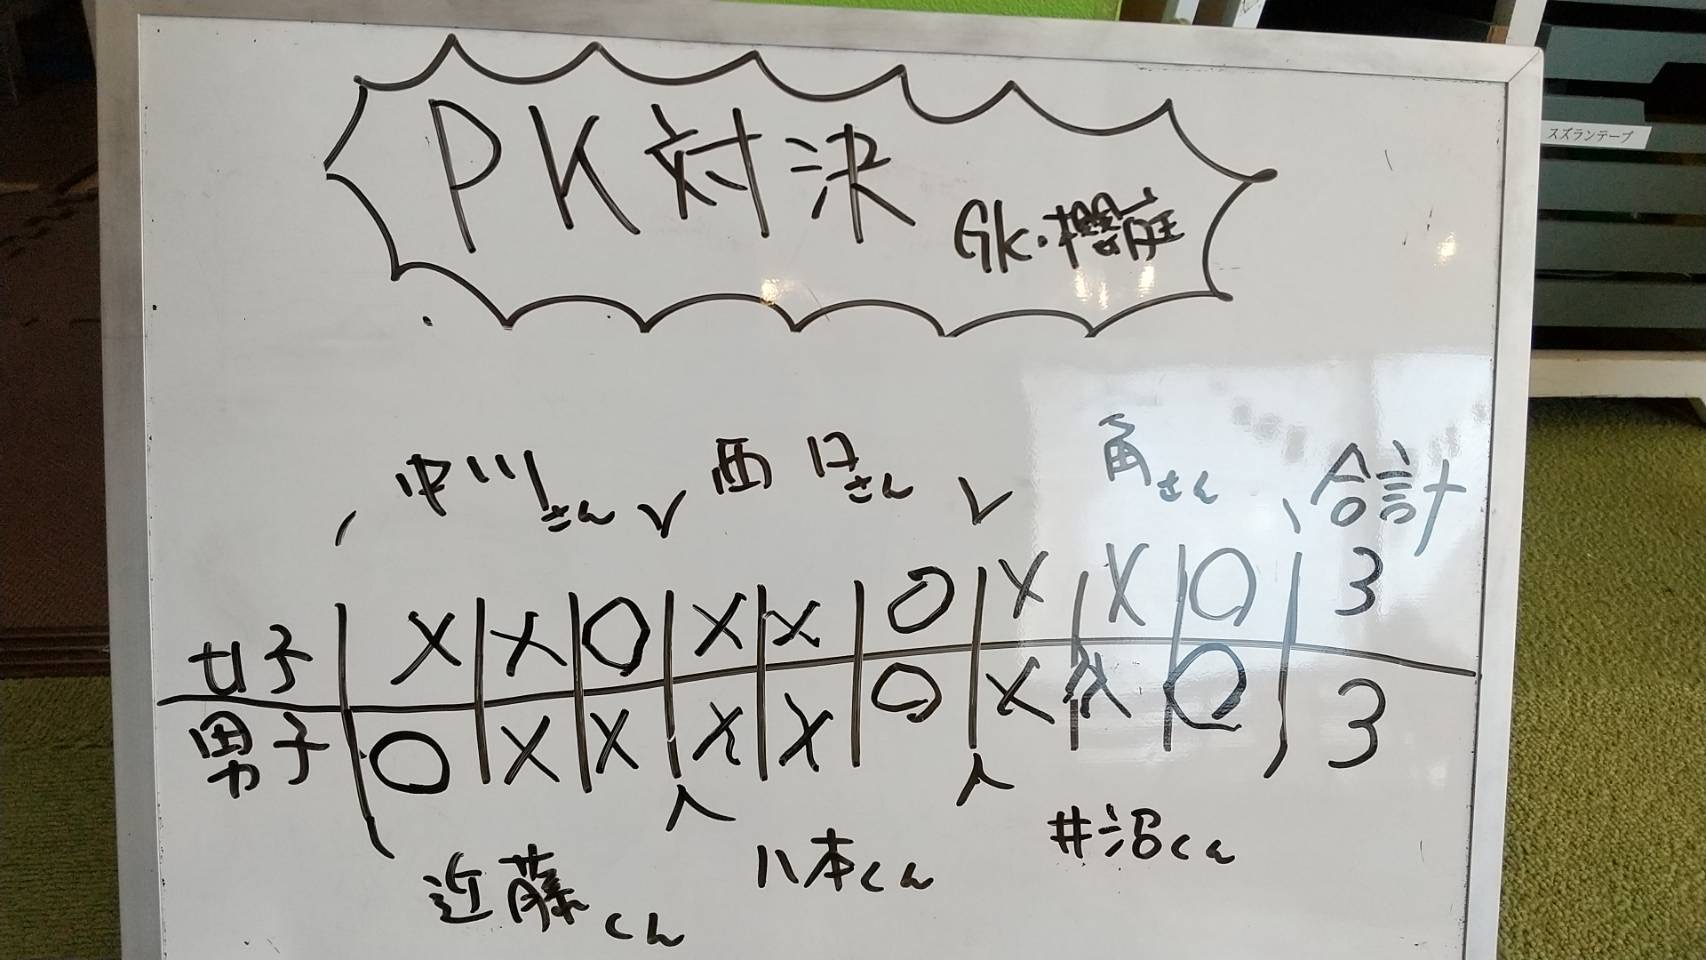 PK対決
GK・櫻庭
スズランテープ
中川さん 西口さん 角さん 合計
女子 × × ○ × × ○ × × ○ 3
男子 ○ × × × × ○ × × ○ 3
近藤くん 八本くん 井沼くん